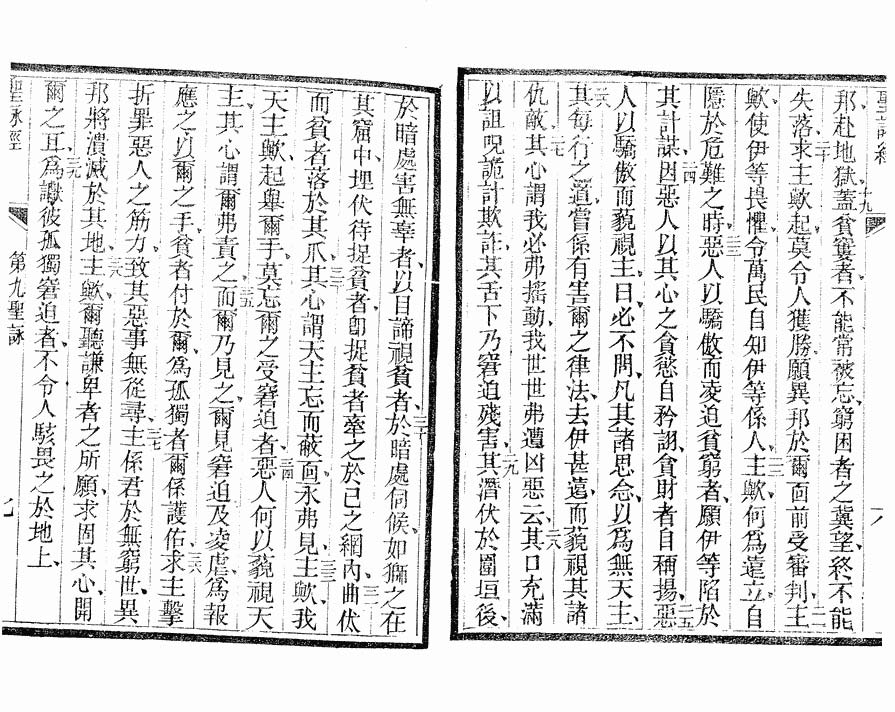 聖詠經
邦赴地獄、十九蓋貧窶者、不能常被忘、窮困者之冀望、終不能
失落、二十求主歟、起、莫令人獲勝、願異邦於爾面前受審判、二一主
歟、使伊等畏懼、令萬民自知伊等係人、二二主歟、何爲遠立、自
隱於危難之時、二三惡人以驕傲而凌迫貧窮者、願伊等陷於
其計謀、二四因惡人以其心之貪慾自矜詡、貪財者自稱揚、二五惡
人以驕傲而藐視主、曰、必不問、凡其諸思念、以爲無天主、
二六其每行之道、嘗係有害、爾之律法去伊甚遠、而藐視其諸
仇敵、二七其心謂我必弗搖動、我世世弗遭凶惡云、二八其口充滿
以詛呪詭計欺詐、其舌下乃窘迫殘害、二九其潛伏於圍垣後、
八
於暗處害無辜者、以目諦視貧者、三十於暗處伺候、如獅之在
其窟中、埋伏待捉貧者、卽捉貧者牽之於己之網內、三一曲伏
而貧者落於其爪、三二其心謂天主忘而蔽面、永弗見、三三主歟、我
天主歟、起、舉爾手、莫忘爾之受窘迫者、三四惡人何以藐視天
主、其心謂爾弗責之、三五而爾乃見之、爾見窘迫及凌虐、爲報
應之以爾之手、貧者付於爾、爲孤獨者、爾係護佑、三六求主擊
折罪惡人之筋力、致其惡事無從尋、三七主係君於無窮世、異
邦將潰滅於其地、三八主歟、爾聽謙卑者之所願、求固其心、開
爾之耳、三九爲讞彼孤獨窘迫者、不令人駭畏之於地上、
聖詠經
第九聖詠
九